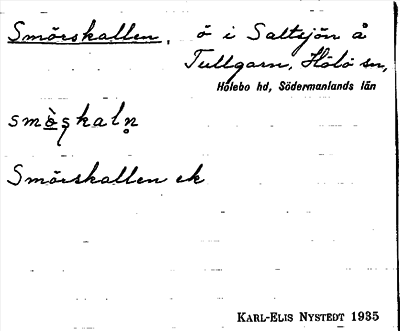 Smörskallen, ö i Saltsjön å
Tullgarn, Hölö sn,
Hölebo hd, Södermanlands län
smöskaln
Smörskallen ek
KARL-ELIS NYSTEDT 1935